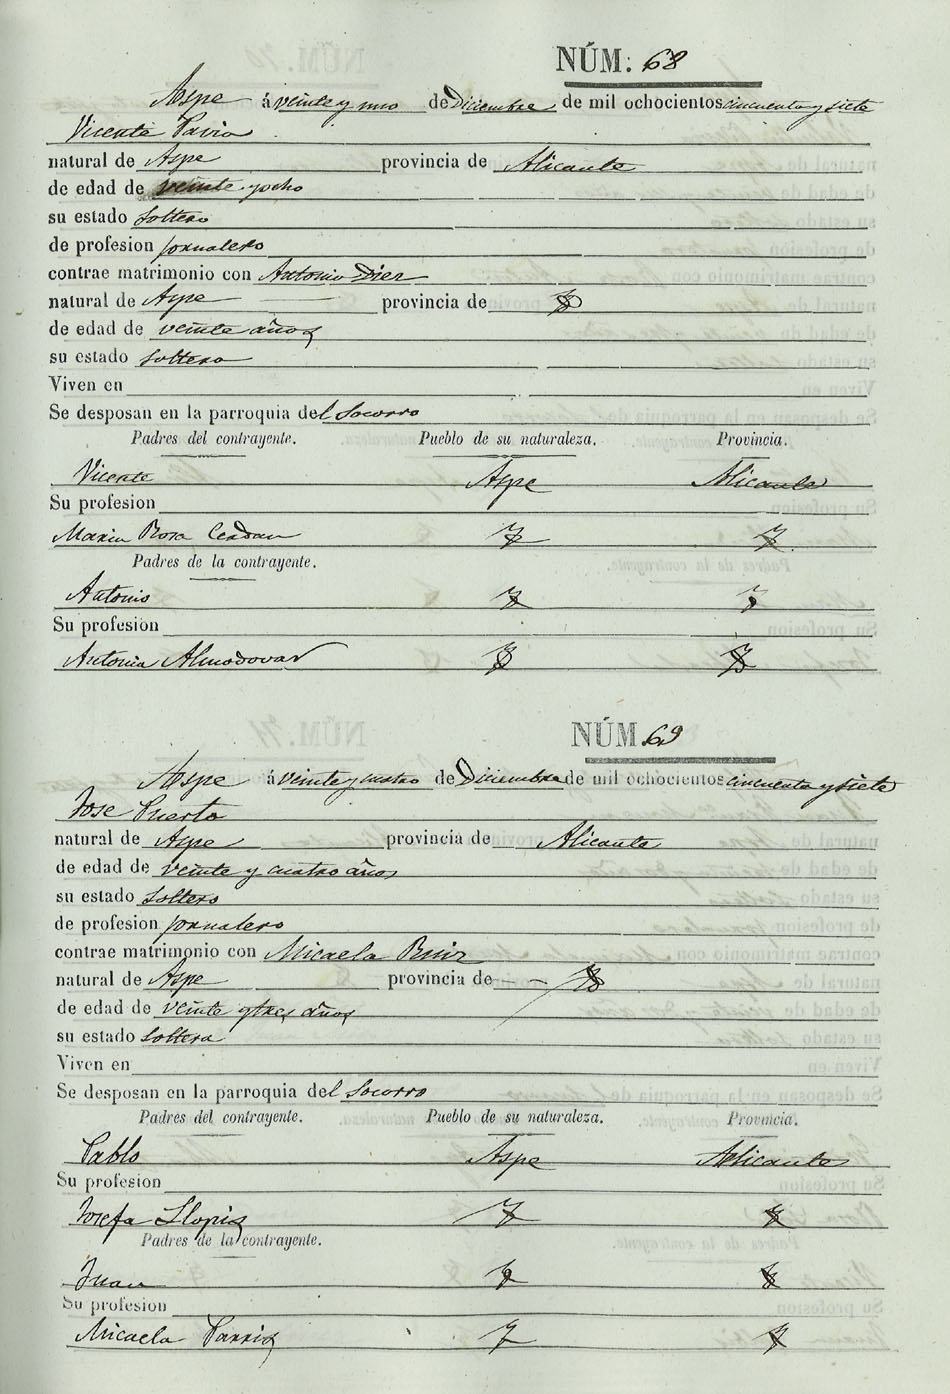 NÚM: 68
Aspe á veinte y uno de Diciembre de mil ochocientos cincuenta y siete
Vicente Pavia
natural de Aspe provincia de Alicante
de edad de veinte y ocho
su estado Soltero
de profesion jornalero
contrae matrimonio con Antonia Diez
natural de Aspe provincia de
de edad de veinte años
su estado Soltera
Viven en
Se desposan en la parroquia del Socorro
Padres del contrayente. Pueblo de su naturaleza. Provincia.
Vicente Aspe Alicante
Su profesion
Maria Rosa Cerdan
Padres de la contrayente.
Antonio
Su profesion
Antonia Almodovar
NÚM. 69
Aspe á veinte y cuatro de Diciembre de mil ochocientos cincuenta y siete
Jose Puerto
natural de Aspe provincia de Alicante
de edad de veinte y cuatro años
su estado Soltero
de profesion jornalero
contrae matrimonio con Micaela Ruiz
natural de Aspe provincia de
de edad de veinte y tres años
su estado Soltera
Viven en
Se desposan en la parroquia del Socorro
Padres del contrayente. Pueblo de su naturaleza. Provincia.
Pablo Aspe Alicante
Su profesion
Josefa Llopiz
Padres de la contrayente.
Juan
Su profesion
Micaela